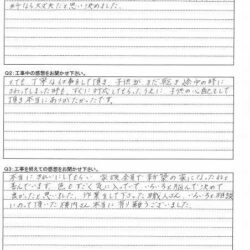 がなら大丈夫だと思い決めました。
Q2:工事中の感想をお聞かせ下さい。
とても丁寧な仕事をして頂き、子供がまだ乾き途中の時に
さわってしまった時も、すぐに対応してもらったうえに子供の心配をして
頂き本当にありがたかったです。
Q3:工事を終えての感想をお聞かせ下さい。
本当にきれいにしてもらい、家族全員で新築の家になったねと
喜んでいます。色もすごく気に入ってて、いろいろと悩んで決めて
良かったと思いました。作業をして下さった職人さん、いろいろと相談
にのって頂いた横内さん本当に有り難うございました。